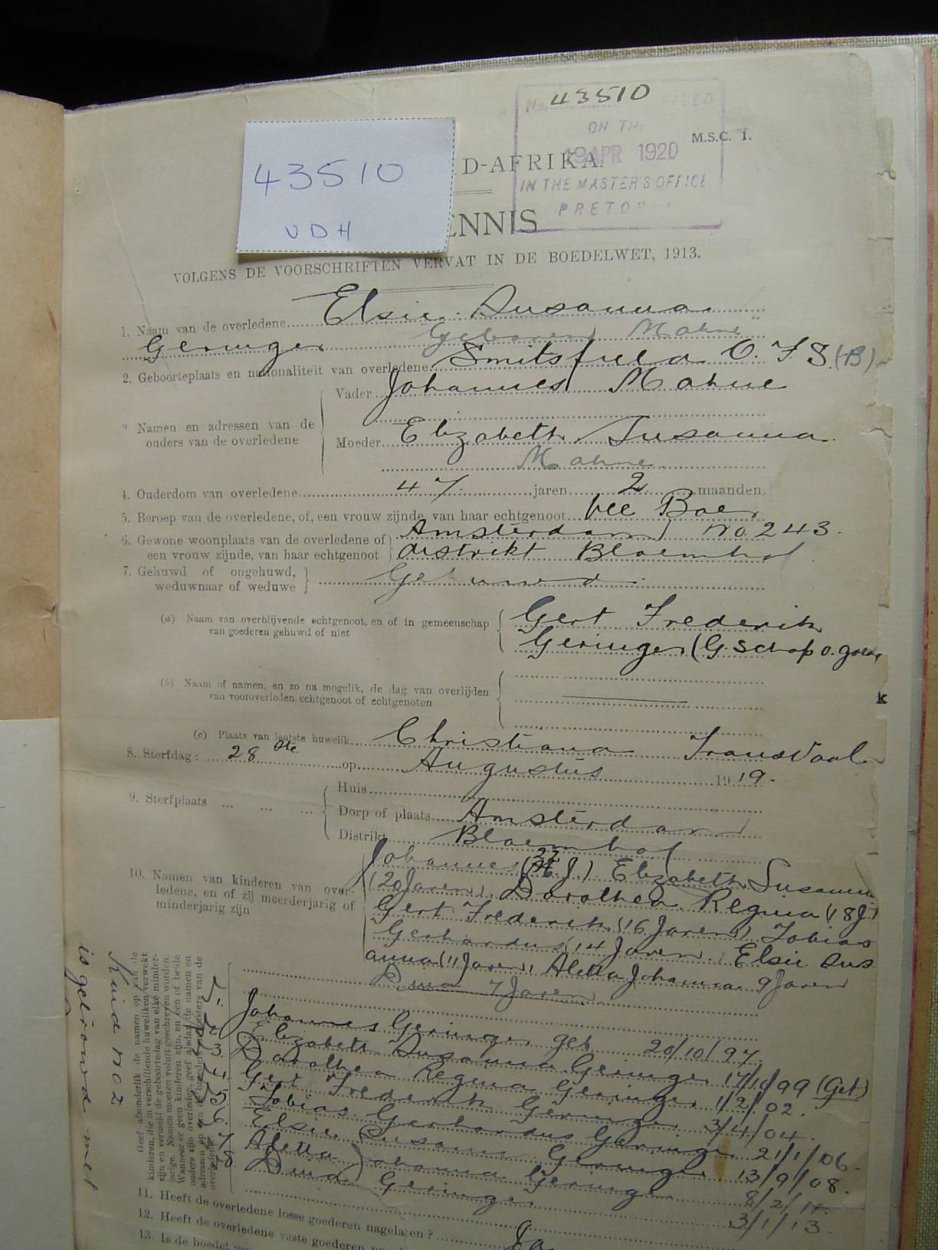 43510
No. FILED
ON THE
19 APR 1920
IN THE MASTER'S OFFICE
PRETORIA
M.S.C. 1.
43510
VDH
D-AFRIKA.
ENNIS
VOLGENS DE VOORSCHRIFTEN VERVAT IN DE BOEDELWET, 1913.
1. Naam van de overledene Elsie Susanna
Geringer Geboren Mahne
2. Geboorteplaats en nationaliteit van overledene Smitsfield O.F.S (B)
3. Namen en adressen van de ouders van de overledene
Vader Johannes Mahne
Moeder Elizabeth Susanna
Mahne
4. Ouderdom van overledene 47 jaren 2 maanden.
5. Beroep van de overledene, of, een vrouw zijnde, van haar echtgenoot Vee Boer
6. Gewone woonplaats van de overledene of een vrouw zijnde, van haar echtgenoot
Amsterdam No 243
distrikt Bloemhof
7. Gehuwd of ongehuwd, weduwnaar of weduwe
Gehuwd
(a) Naam van overblijvende echtgenoot, en of in gemeenschap van goederen gehuwd of niet
Gert Frederik
Geringer (G. schap v. goed
(b) Naam of namen, en zo na mogelik, de dag van overlijden van vooroverleden echtgenoot of echtgenoten
k
(c) Plaats van laatste huwelik Christiana Transvaal
8. Sterfdag: 28ste op Augustus 1919.
9. Sterfplaats
Huis
Dorp of plaats Amsterdam
Distrikt Bloemhof
10. Namen van kinderen van overledene, en of zij meerderjarig of minderjarig zijn
Johannes (22 J.) Elizabeth Susanna
(20 Jaren), Dorothea Regina (18 J)
Gert Frederik (16 Jaren) Tobias
Gerhardus (14 Jaren), Elsie Sus
anna (11 Jaren), Aletta Johanna 9 Jaren
7 Jaren
Johannes Geringer geb 20/10/97
2 Elizabeth Susanna Geringer 17/10/99 (Get)
3 Dorothea Regina Geringer 1/2/02.
Gert Frederik Geringer 3/4/04
5 Tobias Gerhardus Geringer 21/1/06
6. Elsie Susanna Geringer 13/9/08.
7 Aletta Johanna Geringer 8/2/11
8 Geringer 3/1/13
Kind no 2
is getrouwd met
11. Heeft de overledene losse goederen nagelaten? Ja
12. Heeft de overledene vaste goederen
13. Is de boedel